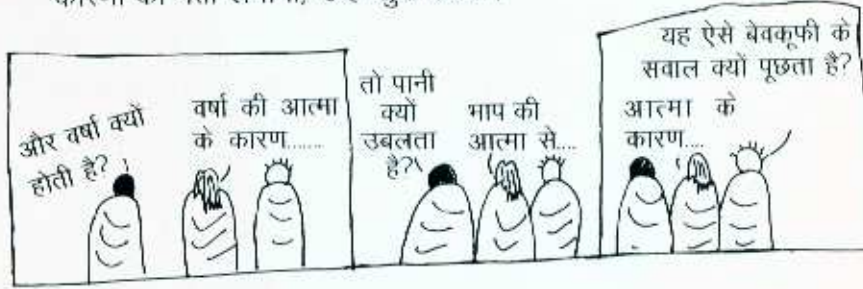 और वर्षा क्यों
होती है?
वर्षा की आत्मा
के कारण.......
तो पानी
क्यों
उबलता
है?
भाप की
आत्मा से....
यह ऐसे बेवकूफी के
सवाल क्यों पूछता है?
आत्मा के
कारण....